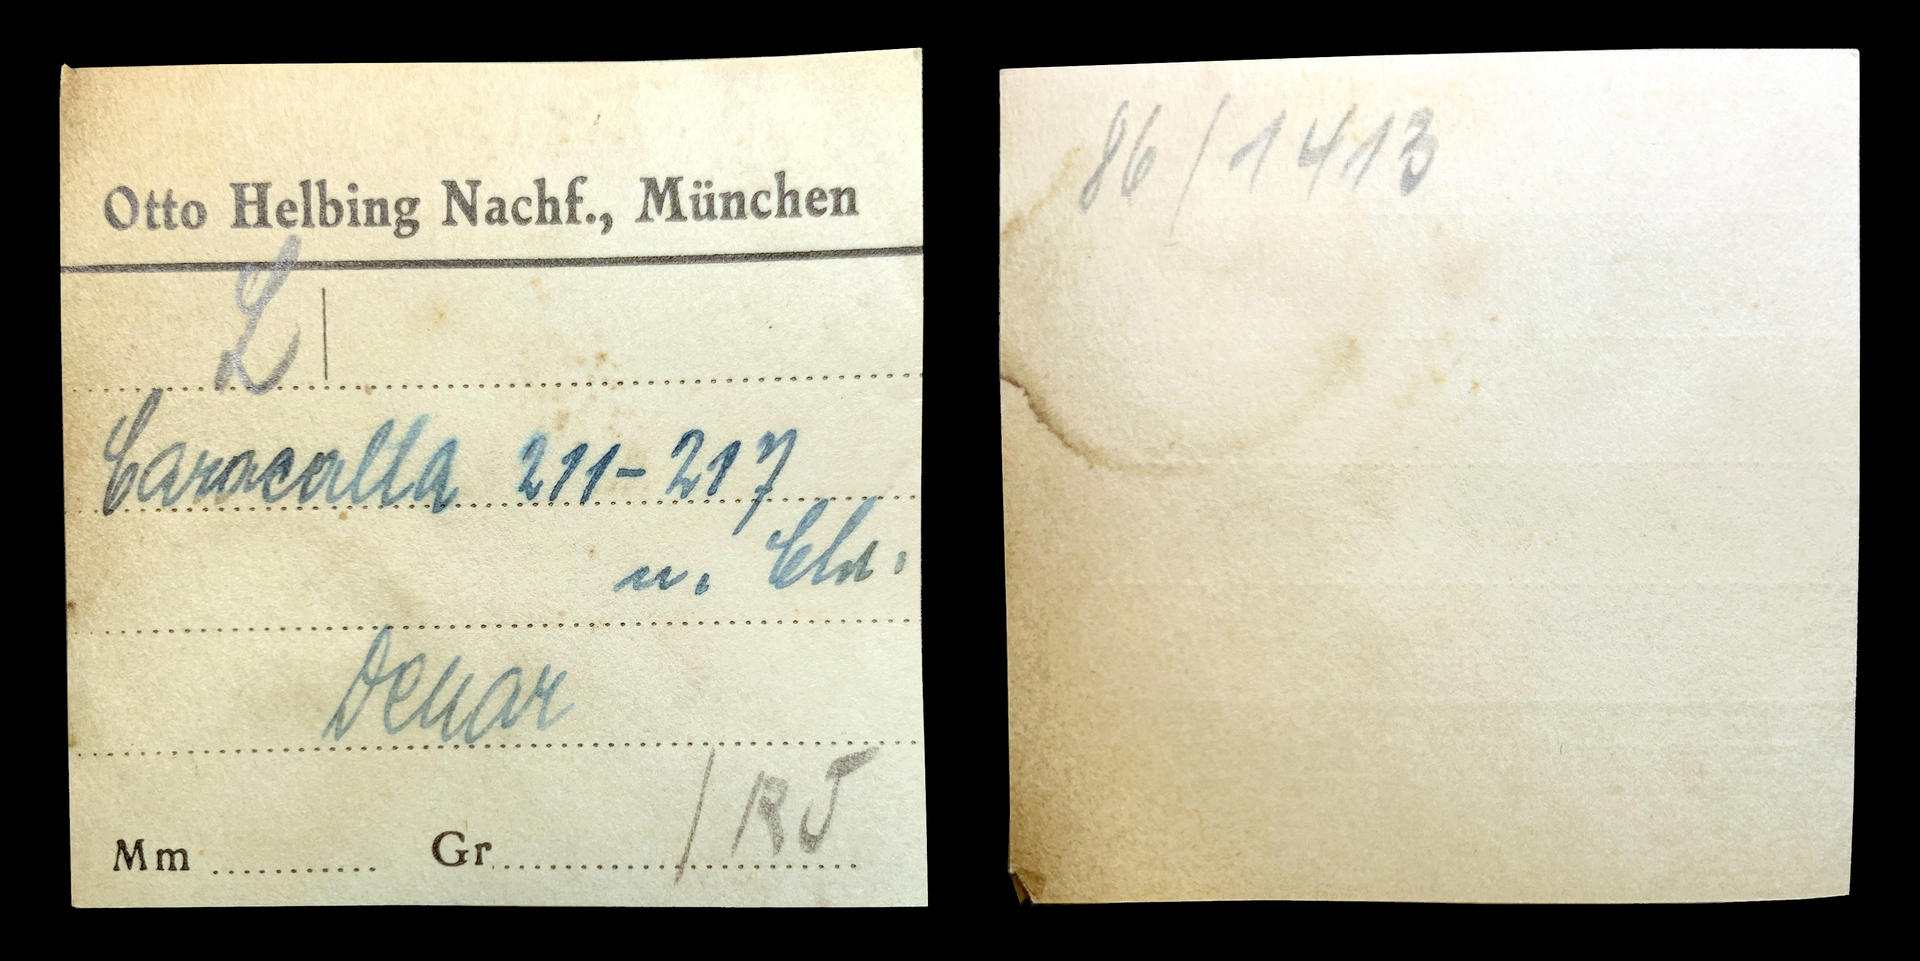 Otto Helbing Nachf., München
L
Caracalla 211-217
n. Chr.
Denar
Mm Gr / RJ
86/1413